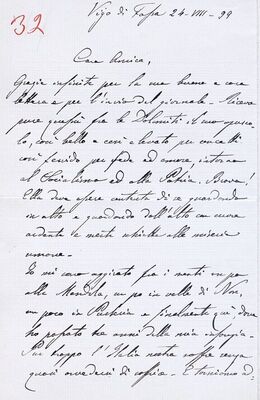 32
Vigo di Fassa 24-VIII-99
Cara Amica,
Grazie infinite per la sua buona e cara
lettera e per l'invio del giornale. Ricevo
pure quassù fra le Dolomiti il suo opusco-
lo, così bello e così elevato per concetti
così fervido per fede ed amore, intorno
al Socialismo ed alla Patria. Brava!
Ella deve essere contenta di sè guardando
in alto e guardando dall'alto con cuore
ardente e mente alle miserie
umane.
Io mi sono aggirato fra i monti un po
alla Mendola, un po in valle di Non,
un poco in Pusteria e finalmente qui, dove
ho passato tre anni della mia infanzia.
Pur troppo l'Italia nostra soffre senza
quasi avvedersi di E torniamo ad-